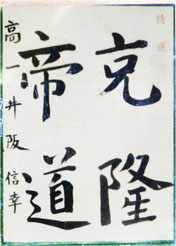 特選
克隆
帝道
高一 井阪信幸